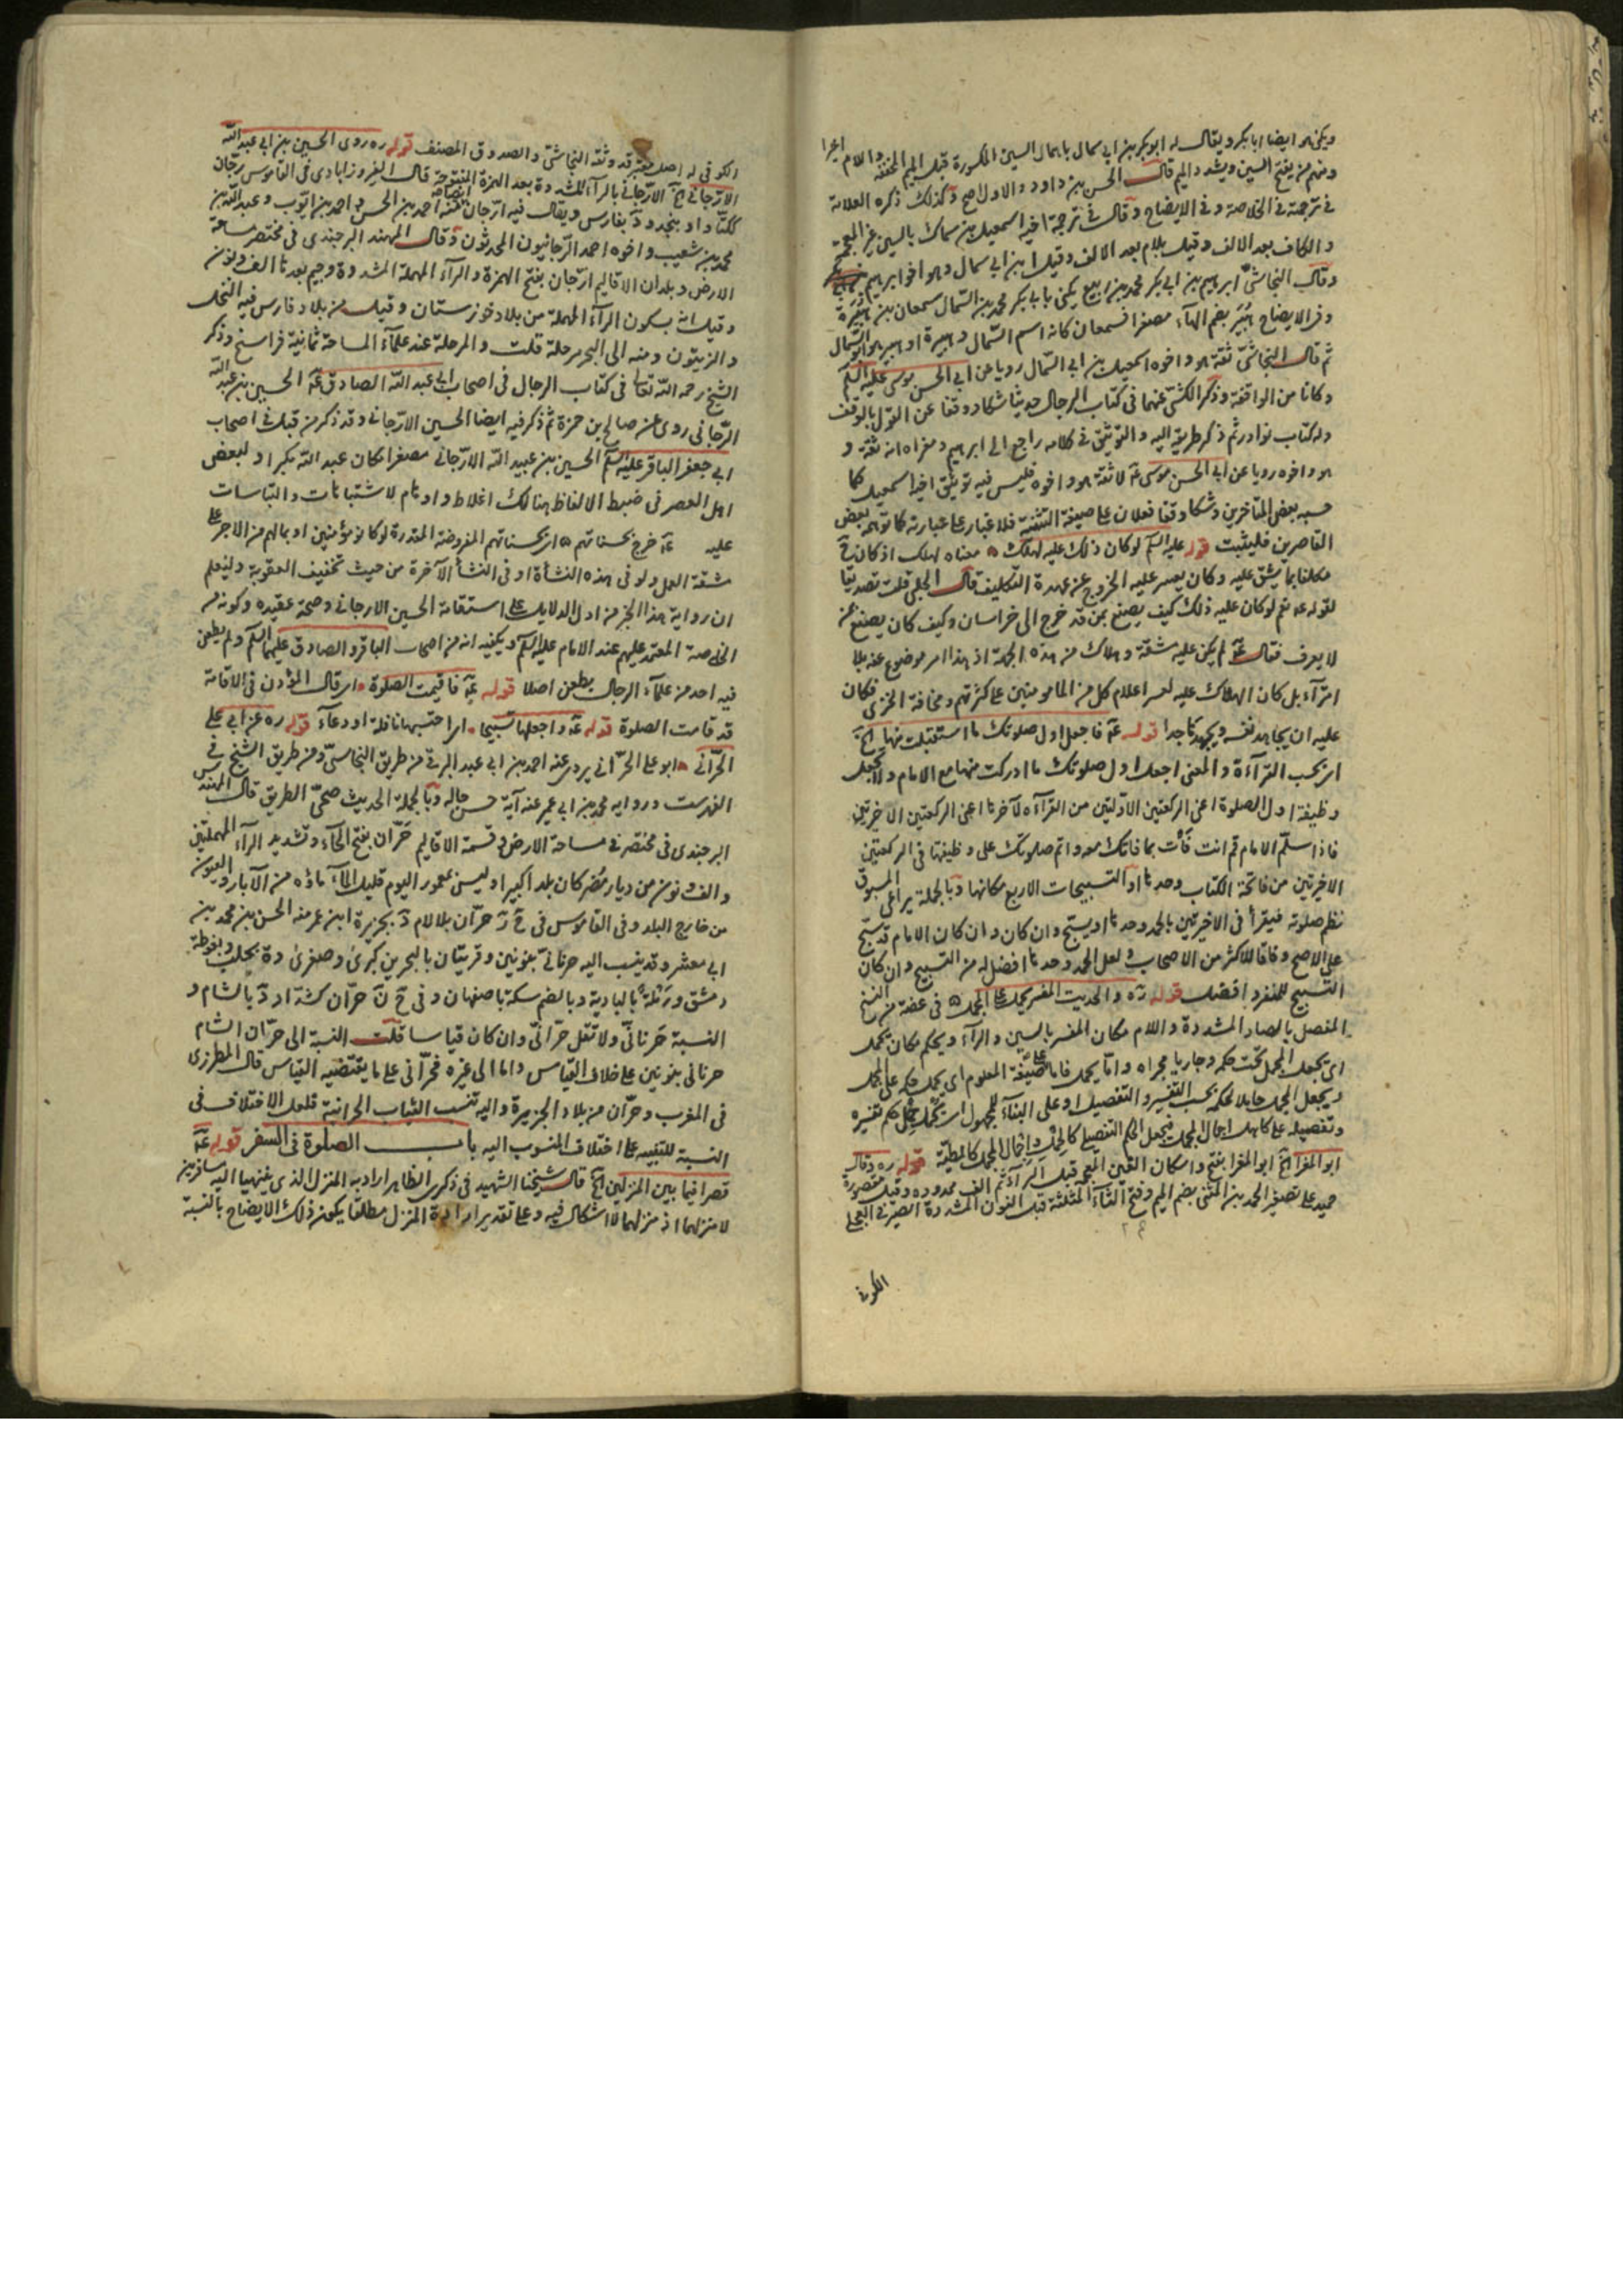 ويكنى هو ايضا ابا بكر ويقال له ابو بكر بن ابي سمال باهمال السين المكسورة قبل الميم المخففة واللام اخيرا
ومنهم من يفتح السين ويشدد الميم قال الحسن بن داود والاول اصح وكذلك ذكره العلامة
في ترجمته في الخلاصة وفي الايضاح وقال في ترجمة اخيه اسمعيل بن سماك بالسين غير المعجمة
والكاف بعد الالف وقيل بلام بعد الالف وقيل ابن ابي سمال وهو اخو ابرهيم
وقال النجاشي ابرهيم بن ابي بكر محمد بن الربيع يكنى بابي بكر محمد بن السمال سمعان بن هبيرة
وفي الايضاح هبير بضم الهاء مصغرا فسمعان كانه اسم السمال وهبيرة او هبير هو ابو السمال
ثم قال النجاشي ثقة هو واخوه اسمعيل بن ابي السمال رويا عن ابي الحسن موسى عليه السلم
وكانا من الواقفة وذكر الكشي عنهما في كتاب الرجال حديثا شكا ووقفا عن القول بالوقف
وله كتاب نوادر ثم ذكر طريقه اليه والتوثيق في كلامه راجع الى ابرهيم ومغزاه انه ثقة و
هو واخوه رويا عن ابي الحسن موسى عه لا ثقة هو واخوه فليس فيه توثيق اخيه اسمعيل كما
حسبه بعض المتاخرين وشكا ووقفا فعلان على صيغة التثنية فلا غبار على عبارته كما توهمه بعض
القاصرين فليثبت قوله عليه السلم لو كان ذلك عليه لهلك ه معناه لهلك اذ كان ح
مكلفا بما يشق عليه وكان يعسر عليه الخروج عن عهدة التكليف قال الحلبي قلت تصديقا
لقوله عه نعم لو كان عليه ذلك كيف يصنع بمن قد خرج الى خراسان وكيف كان يصنع بمن
لا يعرف فقال عه لم يكن عليه مشقة وهلاك من هذه الجهة اذ هذا امر موضوع عنه بلا
امتراء بل كان الهلاك عليه لعسر اعلام كل من المامومين على كثرتهم ومخافة الخزى فكان
عليه ان يجاهد نفسه ويجهدها جدا قوله عه فاجعل اول صلوتك ما استقبلت منها الخ
اى بحسب القرآءة والمعنى اجعل اول صلوتك ما ادركت منها مع الامام ولا تجعل
وظيفة اول الصلوة اعني الركعتين الاوليين من القرآءة لآخرها اعني الركعتين الاخيرتين
فاذا سلم الامام قم انت فأت بما فاتك معه واتم صلوتك على وظيفتها في الركعتين
الاخيرتين من فاتحة الكتاب وحدها او التسبيحات الاربع مكانها وبالجملة يراعى المسبوق
نظم صلوته فيقرأ في الاخيرتين بالحمد وحدها او يسبح وان كان وان كان الامام قد سبح
على الاصح وفاقا للاكثر من الاصحاب ولعل الحمد وحدها افضل له من التسبيح وان كان
التسبيح للمنفرد افضل قوله ره والحديث المفسر يحمل على المجمل ه في عضة من النسخ
المفصل بالصاد المشددة واللام مكان المفسر بالسين والراء ويحكم مكان يحمل
اى يجعل المجمل تحت حكمه وجاريا مجراه واما يحمل فاما على صيغة المعلوم اى يحمل حكمه على المجمل
ويجعل المجمل حاملا لحكمه بحسب التفسير والتفصيل او على البناء للمجهول اى يحمل حكم تفسيره
وتفصيله على كاهل اجمال المجمل فيجعل الحكم التفصيلي كالحمل واجمال المجمل كالمطية قوله ره وقال
ابو المغرا الخ ابو المغرا بفتح واسكان الغين المعجمة قبل الرآء ثم الف ممدودة وقيل مقصورة
حميد على تصغير الحمد بن المثنى بضم الميم وفتح الثآء المثلثة قبل النون المشددة الصيرفي العجلي
الكوفي
الكوفي له اصل معتبر قد وثقه النجاشي والصدوق المصنف قوله ره روى الحسين بن ابي عبد الله
الارجاني الخ الارجاني بالرآء المشددة بعد الهمزة المفتوحة قال الفيروزابادى في القاموس رجان
ككتان واد بنجد ود بفارس ويقال فيه ارجان ايضا منه احمد بن الحسن واحمد بن ايوب وعبد الله بن
محمد بن شعيب واخوه احمد الرجانيون المحدثون وقال المهند البرجندى في مختصر مساحة
الارض وبلدان الاقاليم ارجان بفتح الهمزة والرآء المهملة المشددة وجيم بعدها الف ونون
وقيل انه بسكون الرآء المهملة من بلاد خوزستان وقيل من بلاد فارس فيه النخل
والزيتون ومنه الى البحر مرحلة قلت والمرحلة عند علمآء المساحة ثمانية فراسخ وذكر
الشيخ رحمه الله تعالى في كتاب الرجال في اصحاب ابي عبد الله الصادق عه الحسين بن عبد الله
الرجاني روى عن صالح بن حمزة ثم ذكر فيه ايضا الحسين الارجاني وقد ذكر من قبل في اصحاب
ابي جعفر الباقر عليه السلم الحسين بن عبيد الله الارجاني مصغرا مكان عبد الله مكبرا ولبعض
اهل العصر في ضبط الالفاظ هنالك اغلاط واوهام لاشتباهات والتباسات
عليه عه خرج بحسناتهم ه اى بحسناتهم المفروضة المقدرة لو كانوا مؤمنين او بمالهم من الاجر على
مشقة العمل ولو في هذه النشأة او في النشأ الآخرة من حيث تخفيف العقوبة وليعلم
ان رواية هذا الخبر من ادل الدلايل على استقامة الحسين الارجاني وصحة عقيده وكونه من
الخاصة المعتمد عليهم عند الامام عليه السلم ويكفيه انه من اصحاب الباقر والصادق عليهما السلم ولم يطعن
فيه احد من علمآء الرجال بطعن اصلا قوله عه فاقيمت الصلوة ه اى قال المؤذن في الاقامة
قد قامت الصلوة قوله عه واجعلها تسبيحا ه اى احتسبها نافلة او دعآء قوله ره عن ابي علي
الحراني ه ابو علي الحراني يروى عنه احمد بن ابي عبد البرقي من طريق النجاشي ومن طريق الشيخ في
الفهرست ورواية محمد بن ابي عمير عنه آية حسن حاله وبالجملة الحديث صحي الطريق قال المهندس
البرجندى في مختصره في مساحة الارض وقسمة الاقاليم حران بفتح الحآء وتشديد الرآء المهملتين
والف ونون من ديار مضر كان بلدا كبيرا وليس بمعمور اليوم قليل المآء ماؤه من الآبار والعيون
من خارج البلد وفي القاموس في ح ر حران بلا لام د بجزيرة ابن عمر منه الحسن بن محمد بن
ابي معشر وقد ينسب اليه حرناني بنونين وقريتان بالبحرين كبرى وصغرى وة بحلب وبغوطة
دمشق ورملة بالبادية وبالضم سكة باصفهان وفي ح ن حران كشداد د بالشام و
النسبة حرناني ولا تقل حراني وان كان قياسا قلت النسبة الى حران الشام
حرناني بنونين على خلاف القياس واما الى غيره فحراني على ما يقتضيه القياس قال المطرزى
في المغرب وحران من بلاد الجزيرة واليه تنسب الثياب الحرانية فلعل الاختلاف في
النسبة للتنبيه على اختلاف المنسوب اليه باب الصلوة في السفر قوله عه
قصرا فيما بين المنزلين الخ قال شيخنا الشهيد في ذكرى الظاهر اراد به المنزل الذى ينتهيا اليه مسافرين
لا منزلهما اذ منزلهما لا اشكال فيه وعلى تقدير ارادة المنزل مطلقا يكون ذلك الايضاح بالنسبة